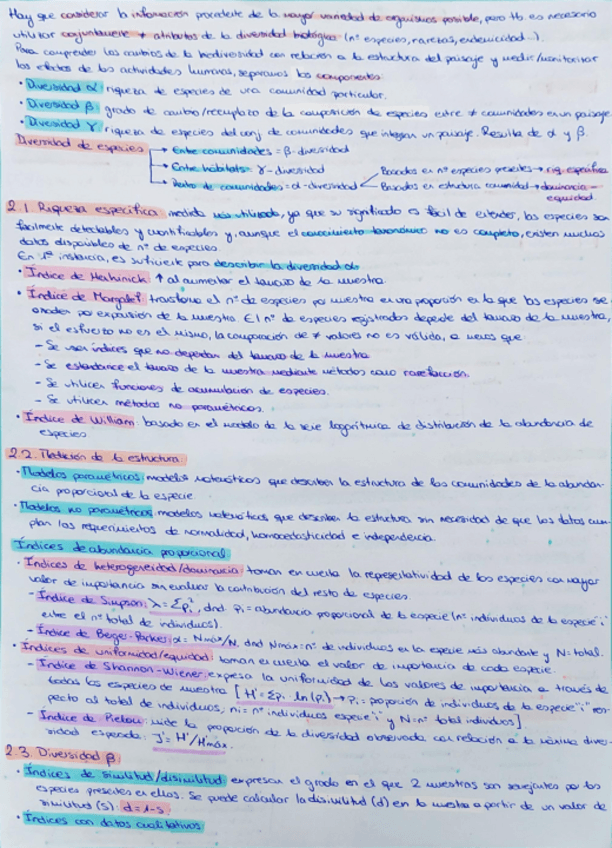 Hay que considerar la información procedente de la mayor variedad de organismos posible, pero tb. es necesario
utilizar conjuntamente ≠ atributos de la diversidad biológica (nº especies, rarezas, endemicidad...).
Para comprender los cambios de la biodiversidad con relación a la estructura del paisaje y medir/monitorizar
los efectos de las actividades humanas, separamos los componentes:
· Diversidad α: riqueza de especies de una comunidad particular.
· Diversidad β: grado de cambio/reemplazo de la composición de especies entre ≠ comunidades en un paisaje.
· Diversidad γ: riqueza de especies del conj de comunidades que integran un paisaje. Resulta de α y β.
Diversidad de especies → Entre comunidades = β-diversidad
→ Entre hábitats = γ-diversidad
→ Dentro de comunidades = α-diversidad
Basados en nº especies presentes → riq. específica
Basados en estructura comunidad → dominancia
equidad.
2.1. Riqueza específica: medida más utilizada, ya que su significado es fácil de entender, las especies son
fácilmente detectables y cuantificables y, aunque el conocimiento taxonómico no es completo, existen muchos
datos disponibles de nº de especies.
En 1ª instancia, es suficiente para describir la diversidad α.
· Índice de Menhinick: ↑ al aumentar el tamaño de la muestra.
· Índice de Margalef: transforma el nº de especies por muestra en una proporción en la que las especies se
añaden por expansión de la muestra. El nº de especies registradas depende del tamaño de la muestra,
si el esfuerzo no es el mismo, la comparación de ≠ valores no es válida, a menos que:
- Se usen índices que no dependan del tamaño de la muestra.
- Se estandarice el tamaño de la muestra mediante métodos como rarefacción.
- Se utilicen funciones de acumulación de especies.
- Se utilicen métodos no paramétricos.
· Índice de William: basado en el modelo de la serie logarítmica de distribución de la abundancia de
especies.
2.2. Medición de la estructura.
· Modelos paramétricos: modelos matemáticos que describen la estructura de las comunidades de la abundan-
cia proporcional de la especie.
· Modelos no paramétricos: modelos matemáticos que describen la estructura sin necesidad de que los datos cum-
plan los requerimientos de normalidad, homocedasticidad e independencia.
Índices de abundancia proporcional
· Índices de heterogeneidad/dominancia: toman en cuenta la representatividad de las especies con mayor
valor de importancia sin evaluar la contribución del resto de especies.
- Índice de Simpson: λ = Σpi², dnd pi = abundancia proporcional de la especie (nº individuos de la especie "i"
entre el nº total de individuos).
- Índice de Berger-Parker: d = Nmáx/N, dnd Nmáx = nº de individuos en la especie más abundante y N = total.
· Índices de uniformidad/equidad: toman en cuenta el valor de importancia de cada especie.
- Índice de Shannon-Wiener: expresa la uniformidad de los valores de importancia a través de
todas las especies de muestra [H' = Σpi · ln(pi) → Pi = proporción de individuos de la especie "i" res-
pecto al total de individuos, ni = nº individuos especie "i" y N = nº total individuos]
- Índice de Pielou: mide la proporción de la diversidad observada con relación a la máxima diver-
sidad esperada: J' = H'/H'máx.
2.3. Diversidad β:
· Índices de similitud/disimilitud: expresan el grado en el que 2 muestras son semejantes por las
especies presentes en ellas. Se puede calcular la disimilitud (d) en la muestra a partir de un valor de
similitud (s): d = 1-s.
· Índices con datos cualitativos: